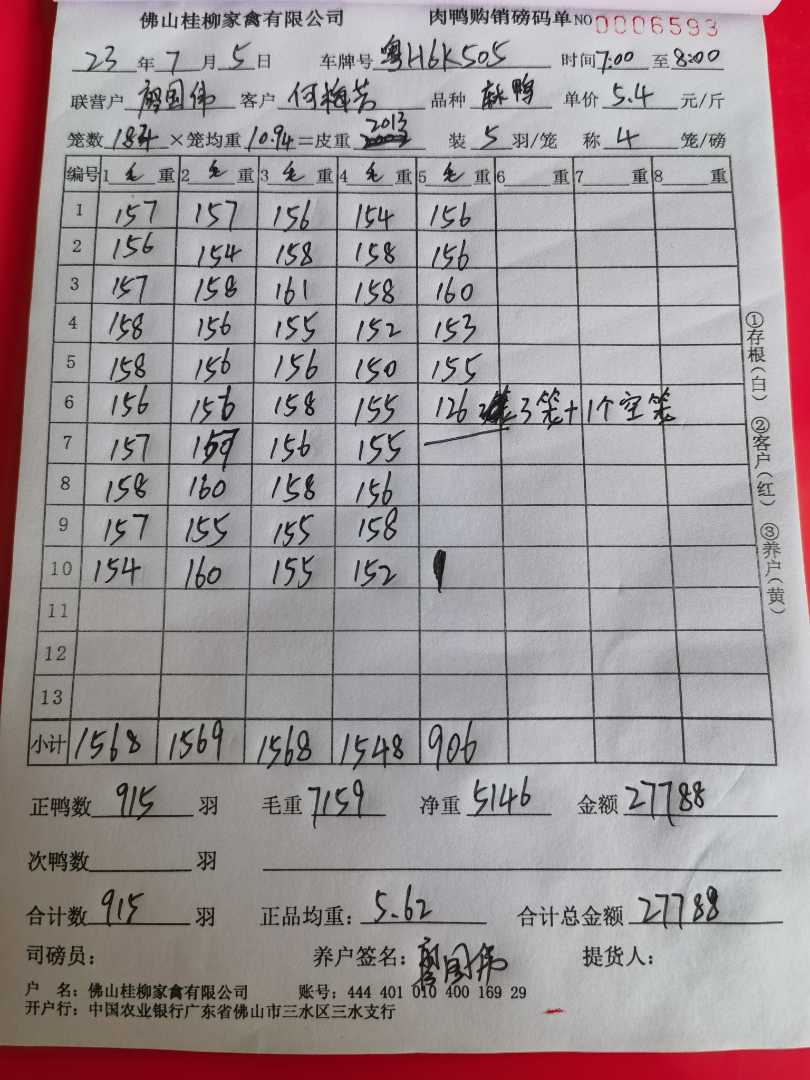 佛山桂柳家禽有限公司 肉鸭购销磅码单NO0006593
23年7月5日 车牌号粤H6K505 时间7:00至8:00
联营户廖国伟 客户何梅芳 品种 鸭 单价5.4元/斤
笼数184×笼均重10.94=皮重2013 装5羽/笼 称4笼/磅
编号 1毛重 2毛重 3毛重 4毛重 5毛重 6重 7重 8重
1 157 157 156 154 156
2 156 154 158 158 156
3 157 158 161 158 160
4 158 156 155 152 153
5 158 156 156 150 155
6 156 156 158 155 126 3笼+1个空笼
7 157 157 156 155
8 158 160 158 156
9 157 155 155 158
10 154 160 155 152
11
12
13
小计 1568 1569 1568 1548 906
正鸭数915羽 毛重7159 净重5146 金额27788
次鸭数 羽
合计数915羽 正品均重:5.62 合计总金额27788
司磅员: 养户签名:廖国伟 提货人:
户 名:佛山桂柳家禽有限公司 账号:444 401 010 400 169 29
开户行:中国农业银行广东省佛山市三水区三水支行
①存根(白) ②客户(红) ③养户(黄)